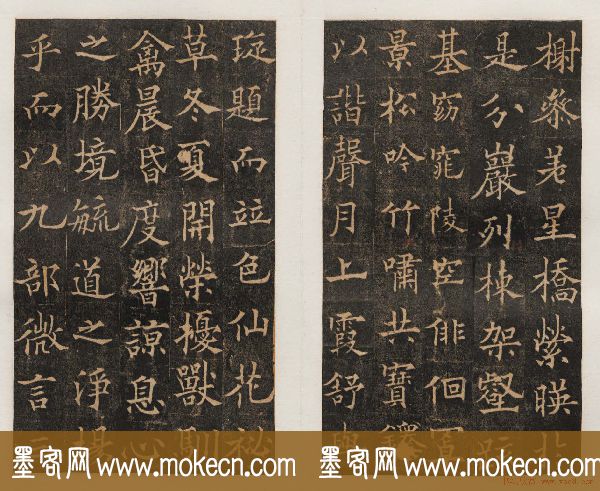 榭參差星橋縈暎
是分巖列棟架壑
基窈窕陵空俳佪
景松吟竹嘯共寶
以諧聲月上霞舒
琁題而竝色仙花祕
草冬夏開榮擾獸
禽晨昏度響諒息心
之勝境毓道之淨
乎而以九部微言
墨客网 www.mokecn.com
墨客网 www.mokecn.com